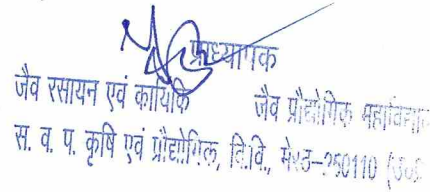 प्राध्यापक
जैव रसायन एवं कायिकि जैव प्रौद्योगिक महाविद्यालय
स. व. प. कृषि एवं प्रौद्योगिक, वि.वि., मेरठ-250110 (उ०प्र०